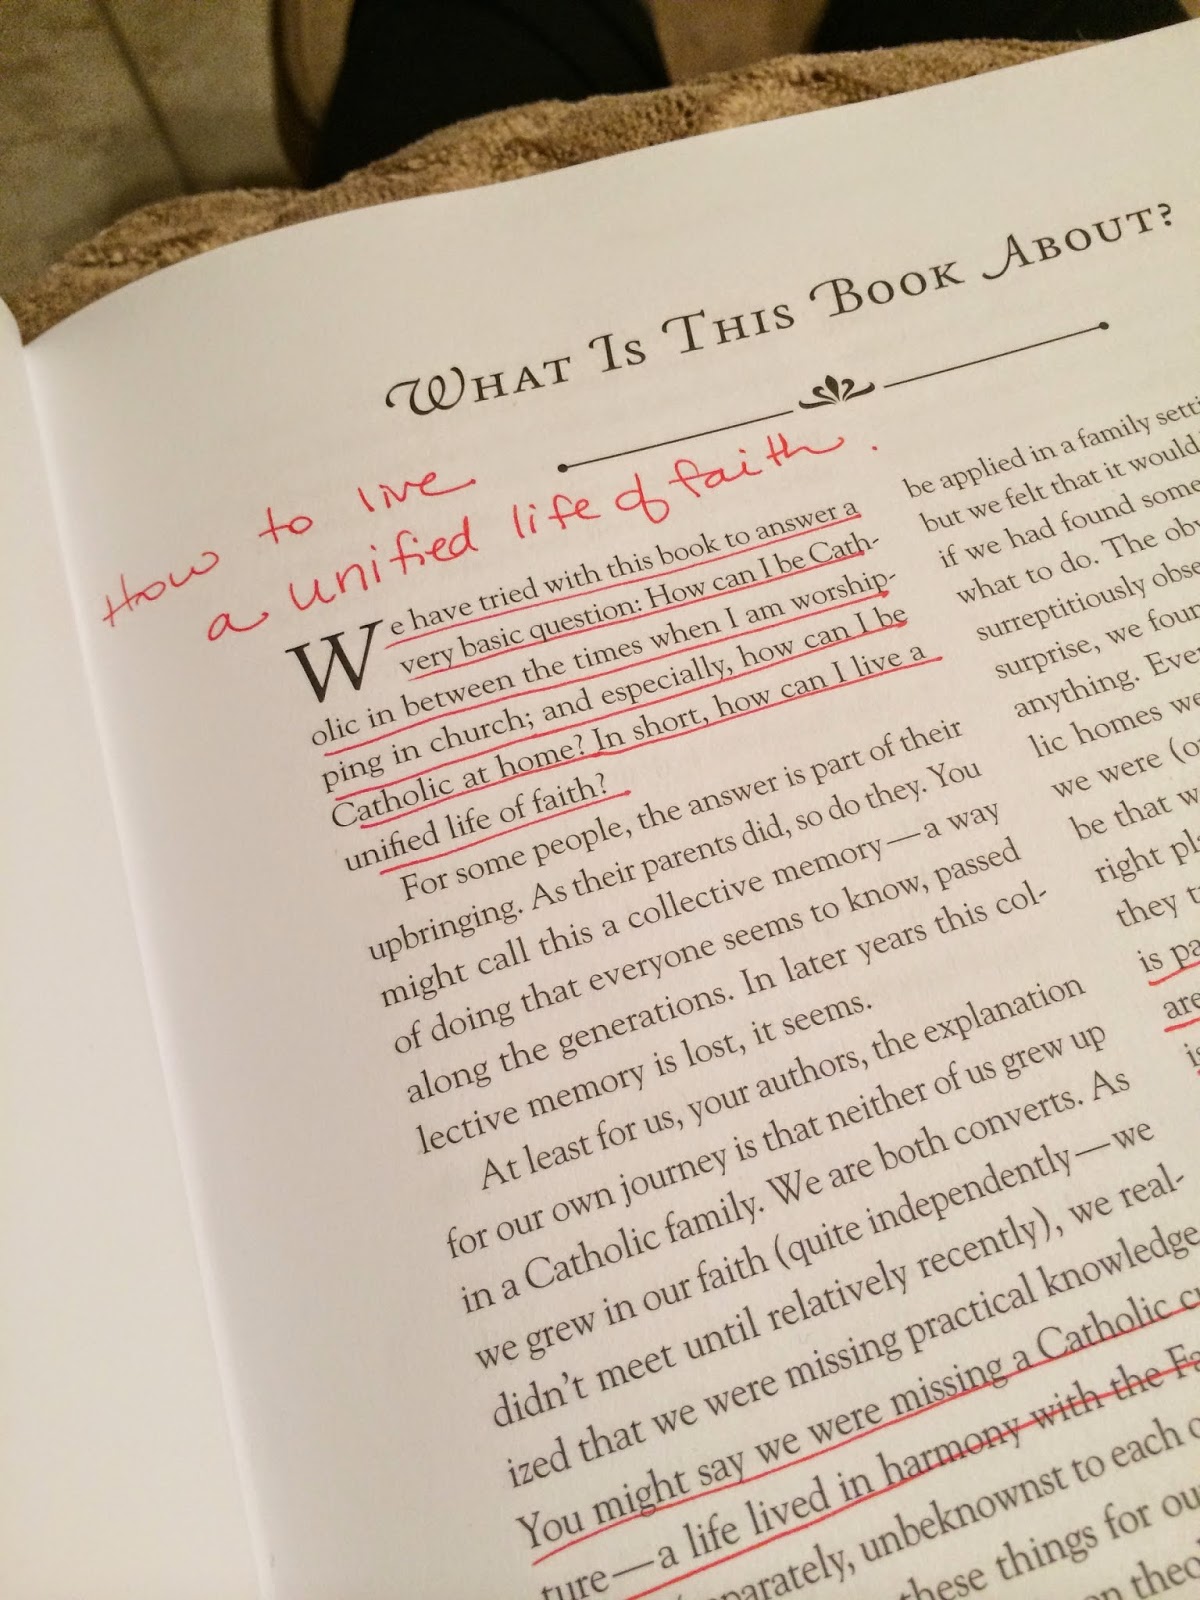 WHAT IS THIS BOOK ABOUT?
How to live
a unified life of faith.
We have tried with this book to answer a
very basic question: How can I be Cath-
olic in between the times when I am worship-
ping in church; and especially, how can I be
Catholic at home? In short, how can I live a
unified life of faith?
For some people, the answer is part of their
upbringing. As their parents did, so do they. You
might call this a collective memory—a way
of doing that everyone seems to know, passed
along the generations. In later years this col-
lective memory is lost, it seems.
At least for us, your authors, the explanation
for our own journey is that neither of us grew up
in a Catholic family. We are both converts. As
we grew in our faith (quite independently—we
didn't meet until relatively recently), we real-
ized that we were missing practical knowledge
You might say we were missing a Catholic
ture—a life lived in harmony with the
unbeknownst to each
these things for
be applied in a family
but we felt that it would
if we had found some
what to do. The
surreptitiously
surprise, we
anything.
lic homes
we were
be that
right
they
is
are